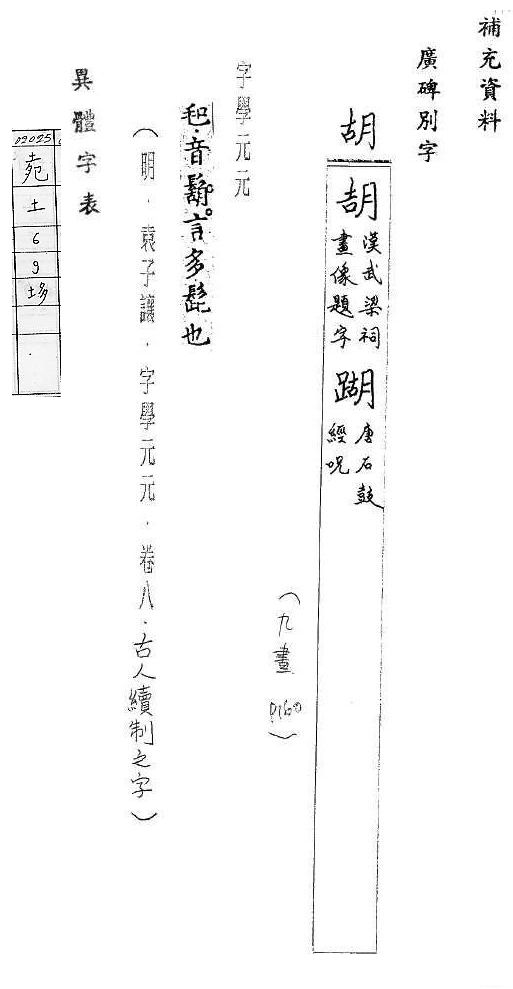 補充資料
廣碑別字
胡
𦙍漢武梁祠畫像題字 䠒唐石鼓經呪
(九畫 P160)
字學元元
音鬍。言多髭也
(明．袁子讓．字學元元．卷八．古人續制之字)
異體字表
02025
土
6
9